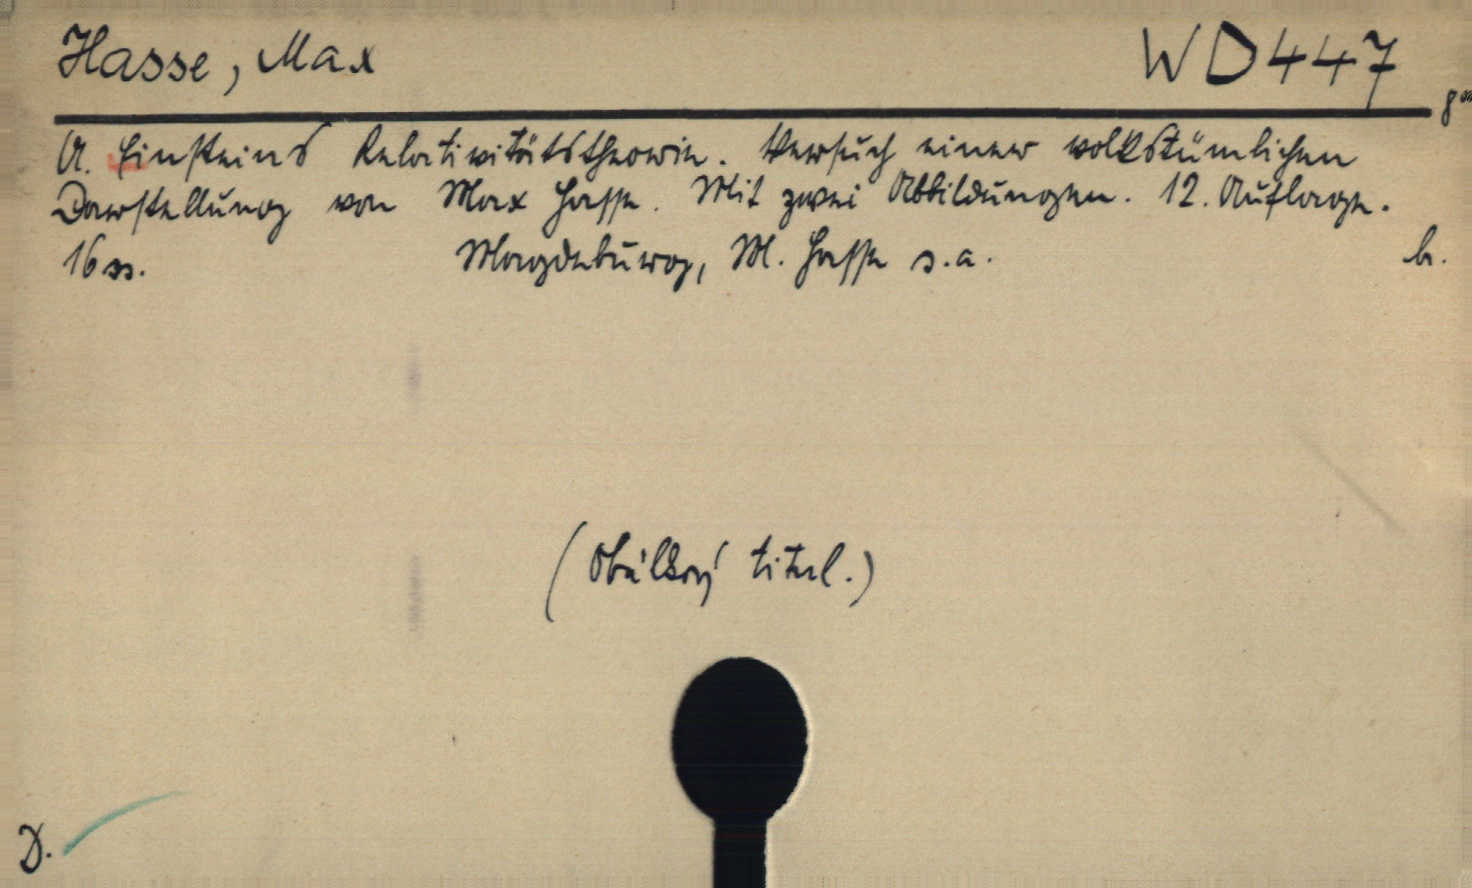 Hasse, Max WD447
8°
A. Einsteins Relativitätstheorie. Versuch einer volkstümlichen
Darstellung von Max Hasse. Mit zwei Abbildungen. 12. Auflage.
16 ss. Magdeburg, M. Hasse s.a. br.
(Obálkový titul.)
D.